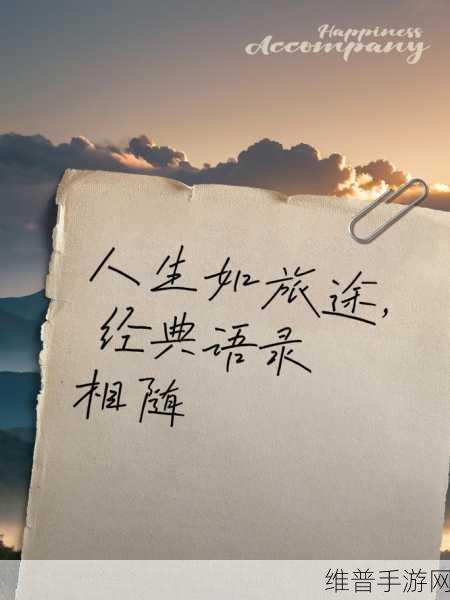 Happiness
Accompany
人生如旅途,
经典语录
相随
维普手游网